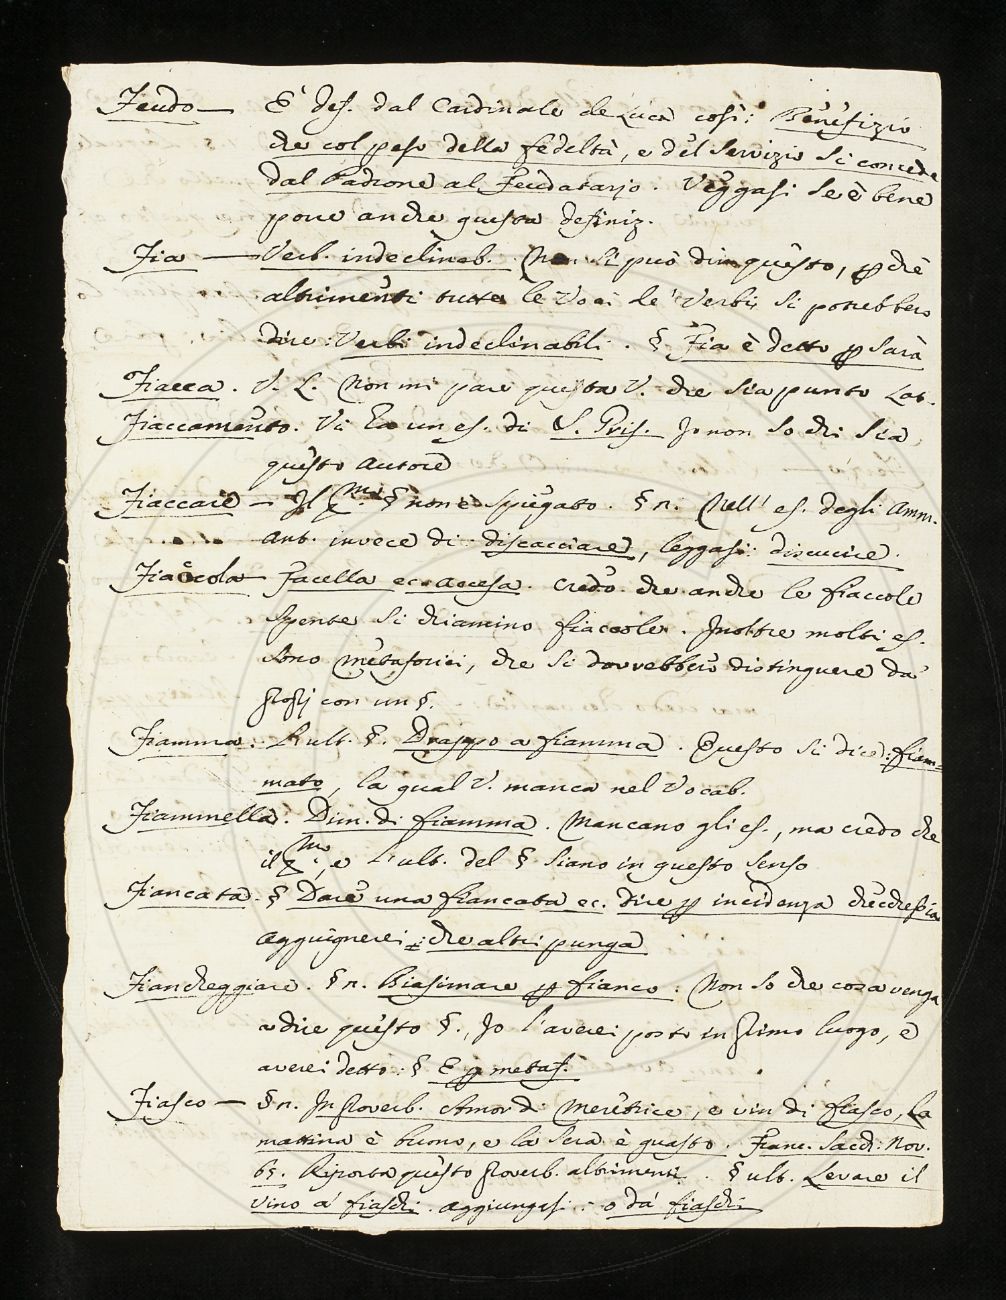 Feudo — È def. dal Cardinale de Luca così: Benefizio
che col peso della fedeltà, e del servizio si concede
dal Padrone al Feudatarjo. Veggasi se è bene
porre anche questa definiz.
Fia — Verb. indeclinab. Non si può dir questo, ꝑchè
altrimenti tutte le Voci de' Verbi si potrebbero
dire: Verbi indeclinabili. § Fia è detto ꝑ sarà
Fiacca. V. L. Non mi pare questa V. che sia punto Lat.
Fiaccamento. Vi ha un es. di S. Gris. Jo non so chi sia
questo Autore
Fiaccare — Il § non è spiegato. § n. Nell' es. degli Amm.
Ant. invece di discacciare, leggasi: discucire.
Fiaccola — Facella ec. accesa. Credo che anche le fiaccole
spente si chiamino fiaccole. Inoltre molti es.
sono metaforici, che si dovrebbero distinguere da'
proprj con un §.
Fiamma. L'ult. §. Drappo a fiamma. Questo si dice: fiam=
mato, la qual V. manca nel Vocab.
Fiammella. Dim. di fiamma. Mancano gli es., ma credo che
il, e l'ult. del § siano in questo senso
Fiancata. § Dare una fiancata ec. dire ꝑ incidenza checchessia
aggiugnerei: che altri punga
Fiancheggiare. § n. Biasimare ꝑ fianco. Non so che cosa venga
a dire questo §. Jo l'averei posto in primo luogo, e
averei detto: § E ꝑ metaf.
Fiasco — § n. In proverb. Amor di Meretrice, e vin di fiasco, la
mattina è buono, e la sera è guasto. Franc. Sacch: Nov.
65. Riporta questo proverb. altrimenti. § ult. Levare il
vino a' fiaschi. aggiungasi: o da' fiaschi